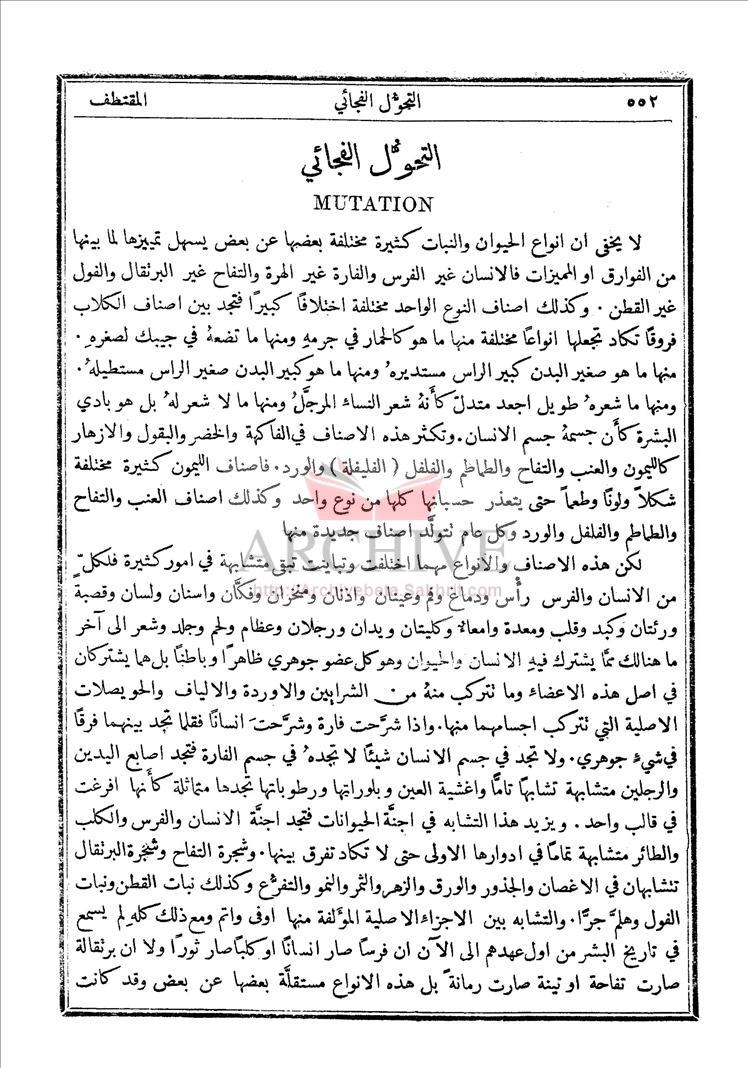 ٥٥٢ التحوّل الفجائي المقتطف
التحوّل الفجائي
MUTATION
لا يخفى ان انواع الحيوان والنبات كثيرة مختلفة بعضها عن بعض يسهل تمييزها لما بينها
من الفوارق او المميزات فالانسان غير الفرس والفارة غير الهرة والتفاح غير البرتقال والفول
غير القطن . وكذلك اصناف النوع الواحد مختلفة اختلافًا كبيرًا فتجد بين اصناف الكلاب
فروقًا تكاد تجعلها انواعًا مختلفة منها ما هو كالحمار في جرمهِ ومنها ما تضعهُ في جيبك لصغرهِ .
منها ما هو صغير البدن كبير الراس مستديرهُ ومنها ما هو كبير البدن صغير الراس مستطيلهُ .
ومنها ما شعرهُ طويل اجعد متدلّ كأنهُ شعر النساء المرجَّل ومنها ما لا شعر لهُ بل هو بادي
البشرة كأن جسمهُ جسم الانسان . وتكثر هذه الاصناف في الفاكهة والخضر والبقول والازهار
كالليمون والعنب والتفاح والطماطم والفلفل ( الفليفلة ) والورد . فاصناف الليمون كثيرة مختلفة
شكلاً ولونًا وطعماً حتى يتعذر حسبانها كلها من نوع واحد وكذلك اصناف العنب والتفاح
والطماطم والفلفل والورد وكل عام تتولَّد اصناف جديدة منها
لكن هذه الاصناف والانواع مهما اختلفت وتباينت تبقى متشابهة في امور كثيرة فلكلّ
من الانسان والفرس رأْس ودماغ وفم وعينان واذنان ومنخران وفكَّان واسنان ولسان وقصبة
ورئتان وكبد وقلب ومعدة وامعاء وكليتان ويدان ورجلان وعظام ولحم وجلد وشعر الى آخر
ما هنالك ممَّا يشترك فيهِ الانسان والحيوان وهو كل عضو جوهري ظاهرًا وباطنًا بل هما يشتركان
في اصل هذه الاعضاء وما تتركب منهُ من الشرايين والاوردة والالياف والحويصلات
الاصلية التي تتركب اجسامهما منها . واذا شرَّحت فارة وشرَّحت انسانًا فقلما تجد بينهما فرقًا
في شيءٍ جوهري . ولا تجد في جسم الانسان شيئًا لا تجدهُ في جسم الفارة فتجد اصابع اليدين
والرجلين متشابهة تشابهًا تامًّا واغشية العين وبلوراتها ورطوباتها تجدها متماثلة كأَنها افرغت
في قالب واحد . ويزيد هذا التشابه في اجنَّة الحيوانات فتجد اجنَّة الانسان والفرس والكلب
والطائر متشابهة تمامًا في ادوارها الاولى حتى لا تكاد تفرق بينها . وشجرة التفاح وشجرة البرتقال
تتشابهان في الاغصان والجذور والورق والزهر والثمر والنمو والتفرُّع وكذلك نبات القطن ونبات
الفول وهلمَّ جرًّا . والتشابه بين الاجزاء الاصلية المؤلفة منها اوفى واتم ومع ذلك كلهِ لم يسمع
في تاريخ البشر من اول عهدهم الى الآن ان فرسًا صار انسانًا او كلبًا صار ثورًا ولا ان برتقالة
صارت تفاحة او تينة صارت رمانةً بل هذه الانواع مستقلَّة بعضها عن بعض وقد كانت
ARCHIVE
http://Archivebeta.Sakhrit.com